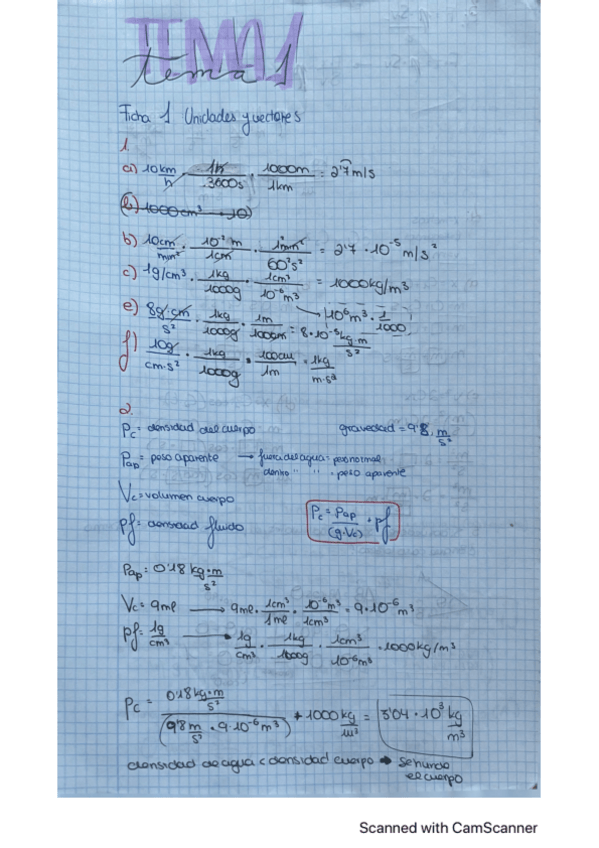 TEMA 1
tema 1
Ficha 1 Unidades y vectores
1.
a) 10km/h · 1h/3600s · 1000m/1km = 2'7 m/s
b) 1000cm³
b) 10cm/min² · 10⁻² m/1cm · 1²min²/60²s² = 2'7 · 10⁻⁵ m/s²
c) 1g/cm³ · 1kg/1000g · 1cm³/10⁻⁶m³ = 1000kg/m³
10⁶m³ · 1/1000
e) 8g·cm/s² · 1kg/1000g · 1m/100cm = 8·10⁻⁵ kg·m/s²
f) 10g/cm·s² · 1kg/1000g · 100cm/1m · 1kg/m·s²
2.
Pc = densidad del cuerpo gravedad = 9'8 m/s²
Pap = peso aparente → fuera del agua = peso normal
dentro " " = peso aparente
Vc = volumen cuerpo
pf = densidad fluido
Pc = Pap/(g·Vc) + pf
Pap = 0'18 kg·m/s²
Vc = 9ml → 9ml · 1cm³/1ml · 10⁻⁶m³/1cm³ = 9·10⁻⁶m³
pf = 1g/cm³ → 1g/cm³ · 1kg/1000g · 1cm³/10⁻⁶m³ · 1000kg/m³
Pc = 0'18kg·m/s² / (9'8 m/s² · 9·10⁻⁶m³) + 1000 kg/m³ = 3'04 · 10³ kg/m³
densidad de agua < densidad cuerpo → se hunde
el cuerpo
Scanned with CamScanner